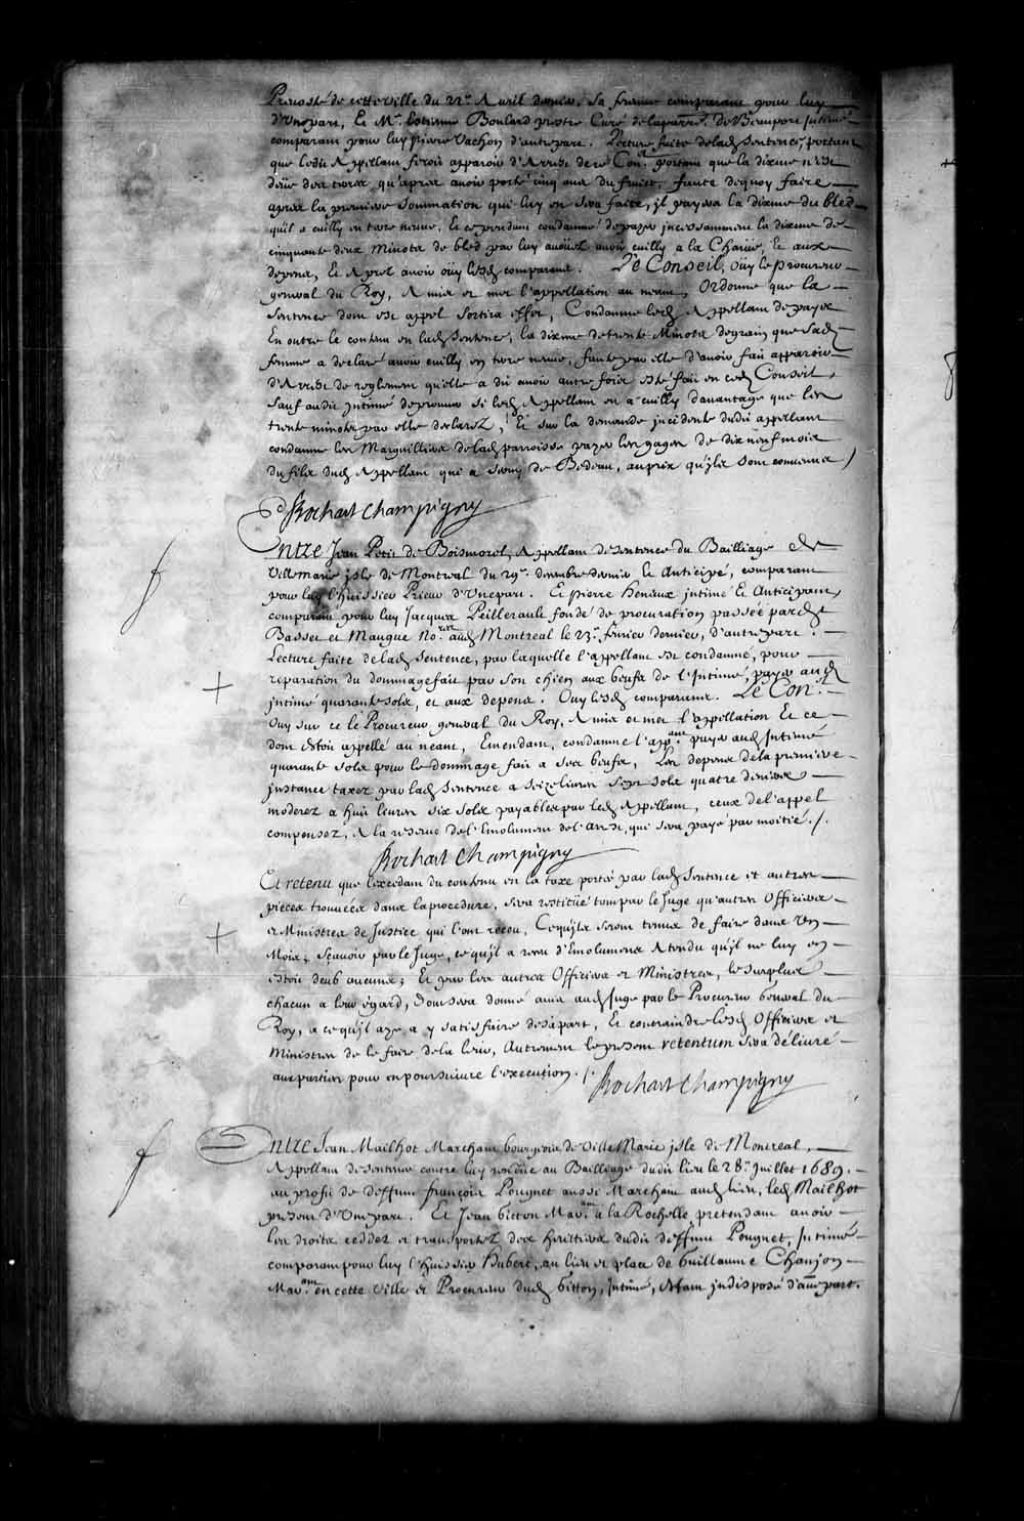 Prevosté de cette ville du 22e Avril dernier, sa femme comparant pour luy
d'Une part, Et Mre Estienne Boulard prestre Curé de la parre de Beauport Intimé
comparant pour luy pierre Vachon d'autre part. Lecture faite de lad sentence, portant
que ledit Appellant feroit apparoir d'Arrest de ce Conl portant que la dixme n'est
deüe des terres qu'apres avoir porté cinq ans du fruict, faute de quoy faire
apres la premiere sommation qui luy en sera faite, jl payera la dixme du bled
quil a cuilly en terre neuve, Et cependant condamné de payer jncessamment la dixme de
cinquante deux minots de bled par luy avoüez avoir cuilly a la Charüe, Et aux
depens, Et Apres avoir oüy lesd comparans. Le Conseil, oüy le procureur
general du Roy, A mis et met l'appellation au neant, Ordonne que la
Sentence dont est appel sortira effet, Condamne led Appellant de payer
En outre le contenu en lad sentence, la dixme de trente Minots de grain que sad
femme a declaré avoir cuilly en terre neuve, faute par elle d'avoir fait apparoir
d'Arrest de reglement qu'elle a dit avoir autre fois esté fait en ced Conseil,
Sauf audit Intimé de prouver si led Appellant en a cuilly davantage que les
trente minots par elle declarez, Et sur la demande jncidente dudit appellant
condamne les Marguilliers de lad parroisse payer les gages de dix neuf mois
du fils dud Appellant qui a servy de Bedeau, au prix qu'jls sont convenus /
Bochart Champigny
Entre Jean Petit de Boismorel, Appellant de sentence du Bailliage de
Villemarie jsle de Montreal du 29e decembre dernier Et Anticipé, comparant
pour luy l'huissier Prieur d'Une part. Et pierre heneaux intimé Et Anticipant
comparant pour luy Jacques Peillerault fondé de procuration passée par devt
Basset et Maugue Nores aud Montreal le 23e fevrier dernier, d'autre part.
Lecture faite de lad sentence, par laquelle l'appellant est condamné, pour
reparation du dommage fait par son chien aux beufs de l'Intimé, payer aud
jntimé quarante sols, et aux depens. Ouy lesd comparans. Le Conl
Ouy sur ce le Procureur general du Roy, A mis et met l'appellation Et ce
dont estoit appellé au neant, Emendant, condamne l'appant payer aud Intimé
quarante sols pour le dommage fait a ses beufs, Les depens de la premiere
jnstance taxez par lad sentence a seize livres sept sols quatre deniers
moderez a huit livres six sols payables par led Appellant, ceux de l'appel
compensez, A la reserve de l'Emolument de l'arrest, qui sera payé par moitié ./.
Bochart Champigny
Et retenu que l'excedant du contenu en la taxe portée par lad sentence et autres
pieces trouvées dans la procedure, sera restitüé tant par le Juge qu'autres Officiers
et Ministres de Justice qui l'ont receu, Ce qu'jls seront tenus de faire dans Un
Mois, sçavoir par le Juge, ce qu'jl a receu d'Emolumens Attendu qu'jl ne luy en
estoit deub aucuns; Et par les autres Officiers et Ministres, le surplus
chacun a leur égard, dont sera donné avis aud Juge par le Procureur General du
Roy, a ce qu'jl aye a y satisfaire de sa part, Et contraindre lesd Officiers et
Ministres de le faire de la leur, Autrement le present retentum sera delivré
aux parties pour en poursuivre l'execution ./.
Bochart Champigny
Entre Jean Mailhot Marchant bourgeois de Ville Marie jsle de Montreal,
Appellant de sentence contre luy rendüe au Bailliage dudit lieu le 28e Juillet 1689.
au profit de deffunt françois Pougnet aussi Marchant aud lieu, led Mailhot
present d'Une part. Et Jean Gitton Marant a la Rochelle pretendant avoir
les droits ceddez et transportez des heritiers dudit deffunt Pougnet, Intimé
comparant pour luy l'huissier Hubert, au lieu et place de Guillaume Chanjon
Marant en cette Ville et Procureur dud Gitton, Intimé, estant jndisposé d'autre part.